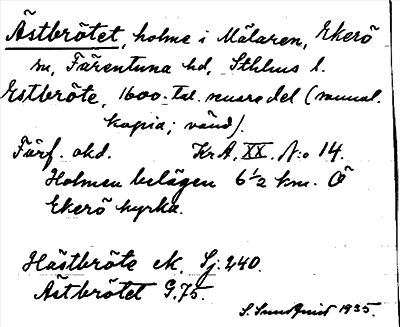 Ästbrötet, holme i Mälaren, Ekerö
sn, Färentuna hd, Sthlms l.
Estbröte, 1600-tal. senare del (samml.
kopia; vänd).
Färf. okd. Kr A. XX. N:o 14.
Holmen belägen 6 1/2 km. Ö
Ekerö kyrka.
Hästbröte ek. Sj. 240.
Ästbrötet G. 75.
S. Sundquist 1935.